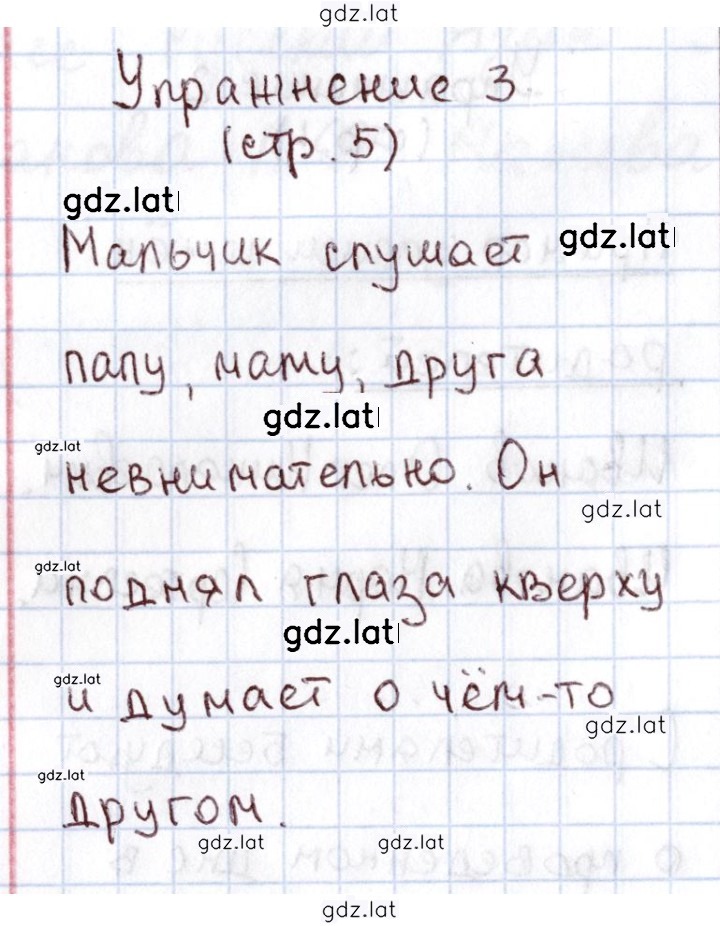 gdz.lat
Упражнение 3
(стр. 5)
gdz.lat
Мальчик слушает gdz.lat
папу, маму, друга
gdz.lat
gdz.lat
невнимательно. Он
gdz.lat
gdz.lat
поднял глаза кверху
gdz.lat
gdz.lat
и думает о чём-то
gdz.lat
gdz.lat
другом.
gdz.lat gdz.lat
gdz.lat